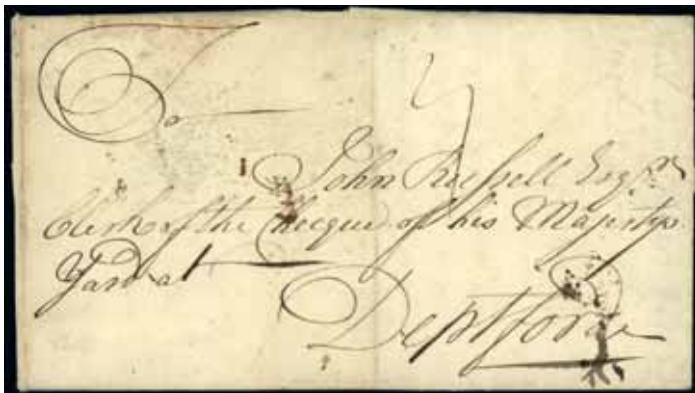 To
4
John Russell Esqr
Clerk of the Checque of his Majestys
Yard at
Deptford